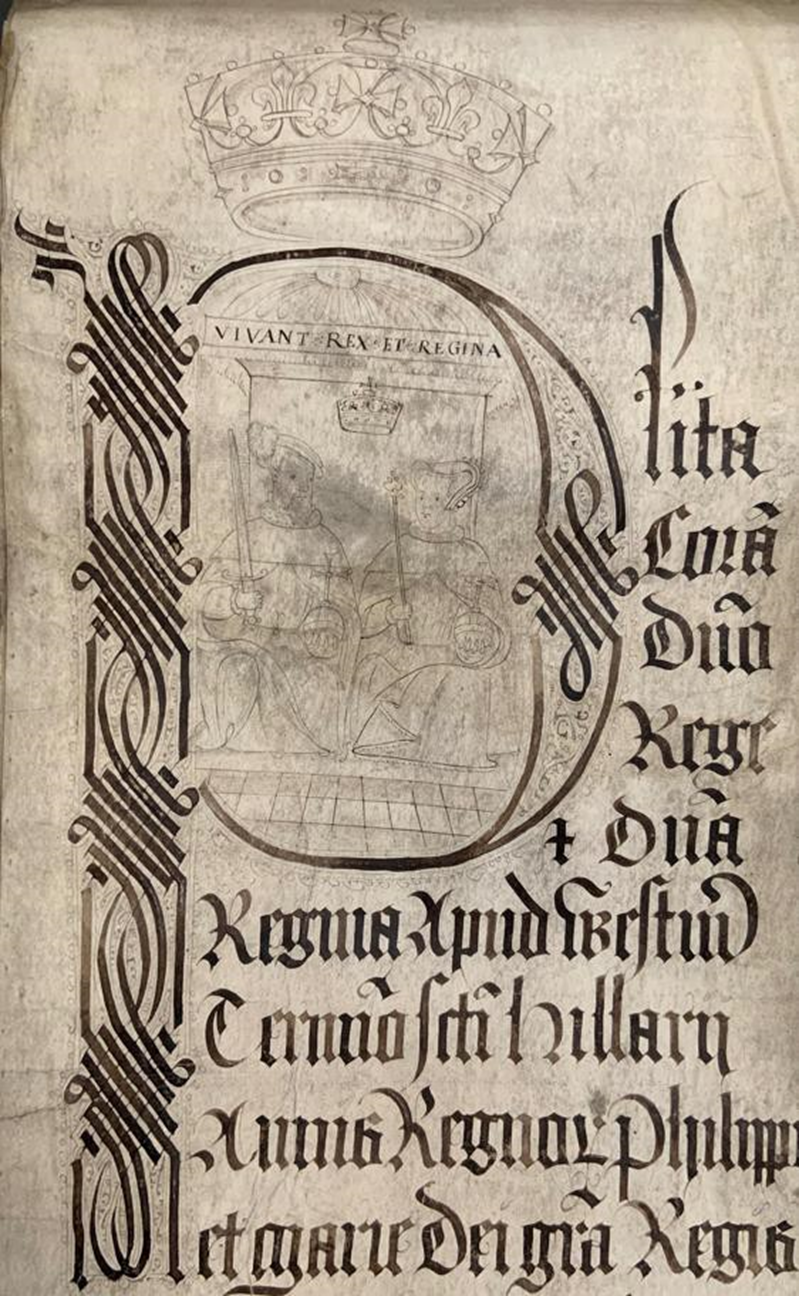 VIVANT · REX · ET · REGINA
Plita
Corã
Dño
Rege
⁊ Dñã
Regina Apud Westm̃
Termĩo sc̃ti hillarii
Annis Regnoꝝ Philippi
et Marie Dei grã Regis